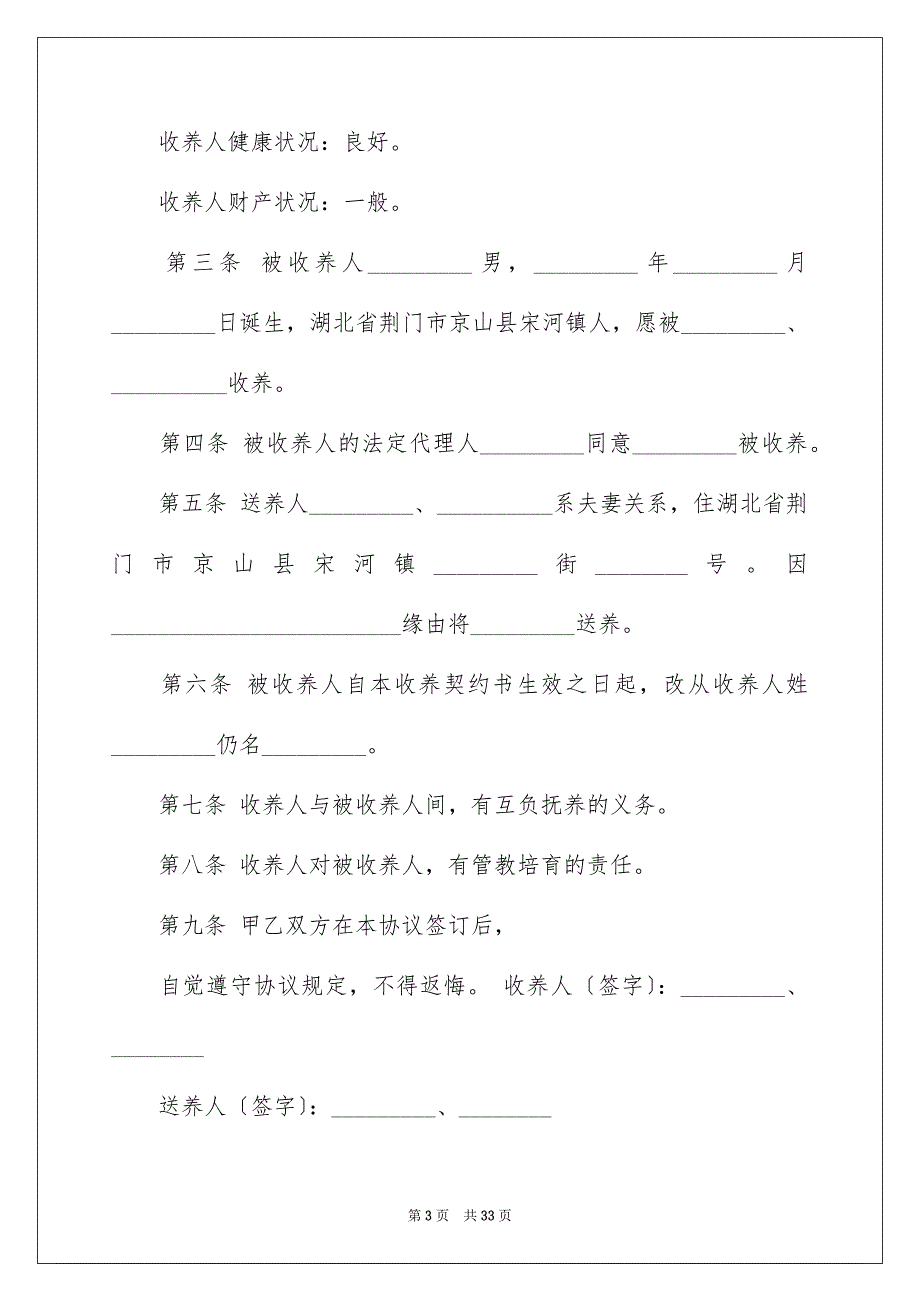 收养人健康状况：良好。
收养人财产状况：一般。
第三条 被收养人_________ 男，_________ 年_________ 月
_________日诞生，湖北省荆门市京山县宋河镇人，愿被_________、
__________收养。
第四条 被收养人的法定代理人_________同意_________被收养。
第五条 送养人_________、__________系夫妻关系，住湖北省荆
门市京山县宋河镇_________街________号。因
_________________________缘由将_________送养。
第六条 被收养人自本收养契约书生效之日起，改从收养人姓
_________仍名_________。
第七条 收养人与被收养人间，有互负抚养的义务。
第八条 收养人对被收养人，有管教培育的责任。
第九条 甲乙双方在本协议签订后，
自觉遵守协议规定，不得返悔。 收养人〔签字〕：_________、
________
送养人〔签字〕：_________、________
第 3 页 共 33 页